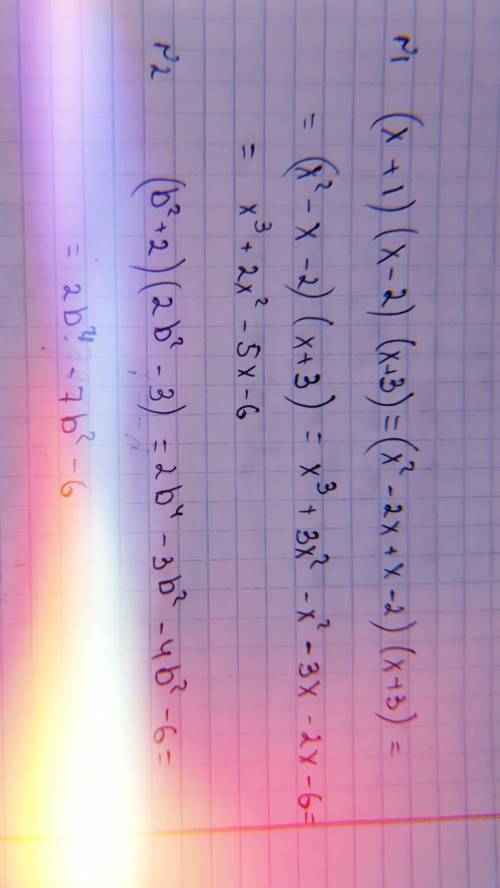 №1 (x+1)(x-2)(x+3)=(x²-2x+x-2)(x+3)=
=(x²-x-2)(x+3)=x³+3x²-x²-3x-2x-6=
= x³+2x²-5x-6
№2 (b²+2)(2b²-3)=2b⁴-3b²-4b²-6=
=2b⁴-7b²-6